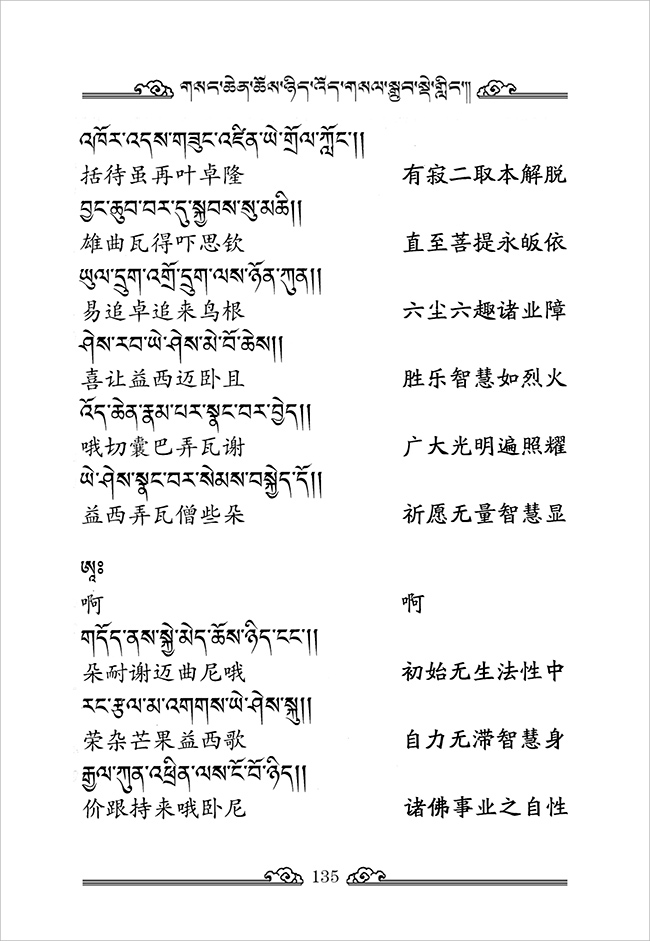 གསང་ཆེན་ཆོས་ཉིད་འོད་གསལ་སྒྲུབ་སྡེ་གླིང༌།།
འཁོར་འདས་གཟུང་འཛིན་ཡེ་གྲོལ་ཀློང་།།
括待虽再叶卓隆 有寂二取本解脱
བྱང་ཆུབ་བར་དུ་སྐྱབས་སུ་མཆི།།
雄曲瓦得吓思钦 直至菩提永皈依
ཡུལ་དྲུག་འགྲོ་དྲུག་ལས་ཉོན་ཀུན།།
易追卓追来鸟根 六尘六趣诸业障
ཤེས་རབ་ཡེ་ཤེས་མེ་བོ་ཆེས།།
喜让益西迈卧且 胜乐智慧如烈火
འོད་ཆེན་རྣམ་པར་སྣང་བར་བྱེད།།
哦切囊巴弄瓦谢 广大光明遍照耀
ཡེ་ཤེས་སྣང་བར་སེམས་བསྐྱེད་དོ།།
益西弄瓦僧些朵 祈愿无量智慧显
ཨཱཿ
啊 啊
གདོད་ནས་སྐྱེ་མེད་ཆོས་ཉིད་ངང་།།
朵耐谢迈曲尼哦 初始无生法性中
རང་རྩལ་མ་འགགས་ཡེ་ཤེས་སྐུ།།
荣杂芒果益西歌 自力无滞智慧身
རྒྱལ་ཀུན་འཕྲིན་ལས་ངོ་བོ་ཉིད།།
价跟持来哦卧尼 诸佛事业之自性
135